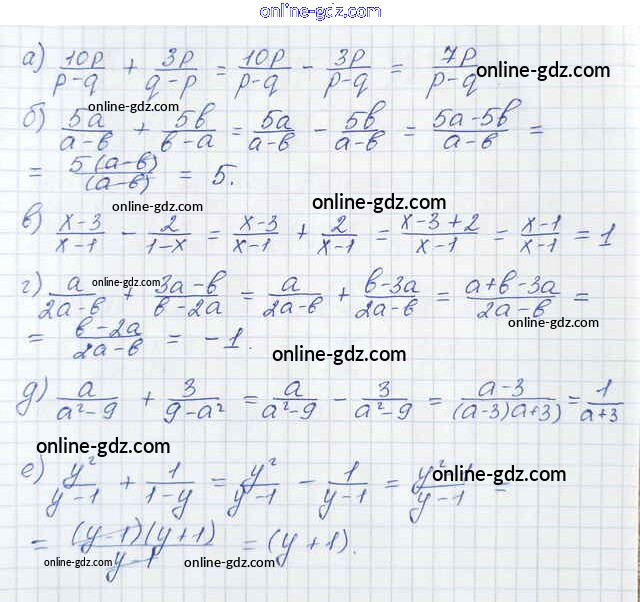 online-gdz.com
а) 10p/(p-q) + 3p/(q-p) = 10p/(p-q) - 3p/(p-q) = 7p/(p-q) online-gdz.com
online-gdz.com
б) 5a/(a-в) + 5в/(в-a) = 5a/(a-в) - 5в/(a-в) = (5a-5в)/(a-в) =
= 5(a-в)/(a-в) = 5.
online-gdz.com online-gdz.com
в) (x-3)/(x-1) - 2/(1-x) = (x-3)/(x-1) + 2/(x-1) = (x-3+2)/(x-1) = (x-1)/(x-1) = 1
online-gdz.com
г) a/(2a-в) + (3a-в)/(в-2a) = a/(2a-в) + (в-3a)/(2a-в) = (a+в-3a)/(2a-в) =
online-gdz.com
= (в-2a)/(2a-в) = -1.
online-gdz.com
д) a/(a²-9) + 3/(9-a²) = a/(a²-9) - 3/(a²-9) = (a-3)/((a-3)(a+3)) = 1/(a+3)
online-gdz.com
е) y²/(y-1) + 1/(1-y) = y²/(y-1) - 1/(y-1) = (y²-1)/(y-1) =
online-gdz.com
= (y-1)(y+1)/(y-1) = (y+1).
online-gdz.com online-gdz.com
online-gdz.com